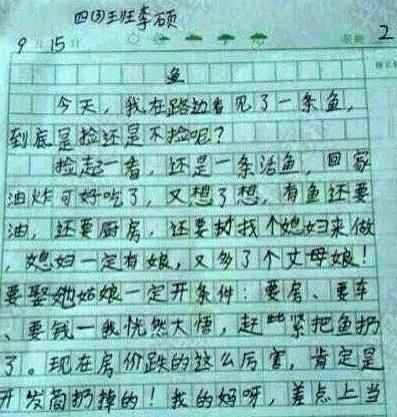 四(3)班李硕
9月15日 星期 2
鱼
今天，我在路边看见了一条鱼，
到底是捡还是不捡呢？
捡起一看，还是一条活鱼，回家
油炸可好吃了，又想了想，有鱼还要
油，还要厨房，还要找个媳妇来做
，媳妇一定有娘，又多了个丈母娘！
要娶她姑娘一定开条件：要房、要车
、要钱一我恍然大悟，赶紧把鱼扔
了。现在房价跌的这么厉害，肯定是
开发商扔掉的！我的妈呀，差点上当